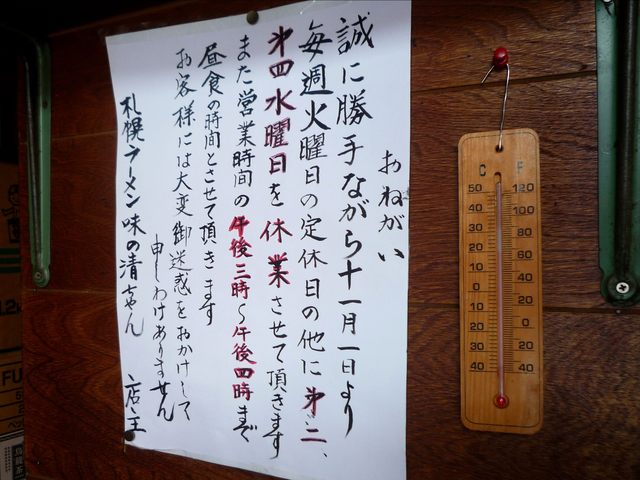 おねがい
誠に勝手ながら十一月一日より
毎週火曜日の定休日の他に第二、
第四水曜日を休業させて頂きます
また営業時間の午後三時～午後四時まで
昼食の時間とさせて頂きます
お客様には大変御迷惑をおかけして
申しわけありません
札幌ラーメン味の清ちゃん 店主
C F
50 120
40 100
30 80
20 60
10 40
0 20
10 0
20 20
30 40
40
FU
烏龍茶